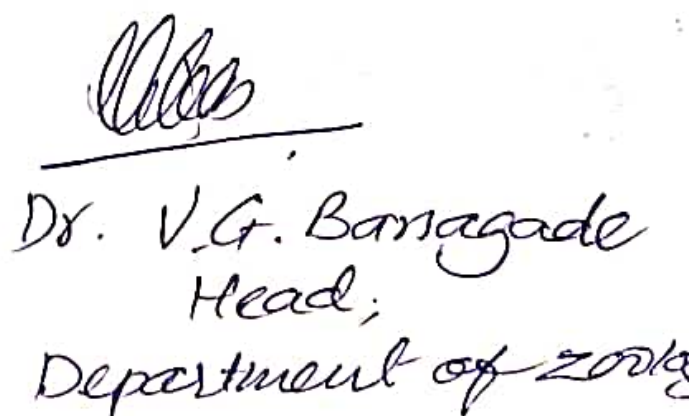 Dr. V.G. Barsagade
Head,
Department of Zoolog